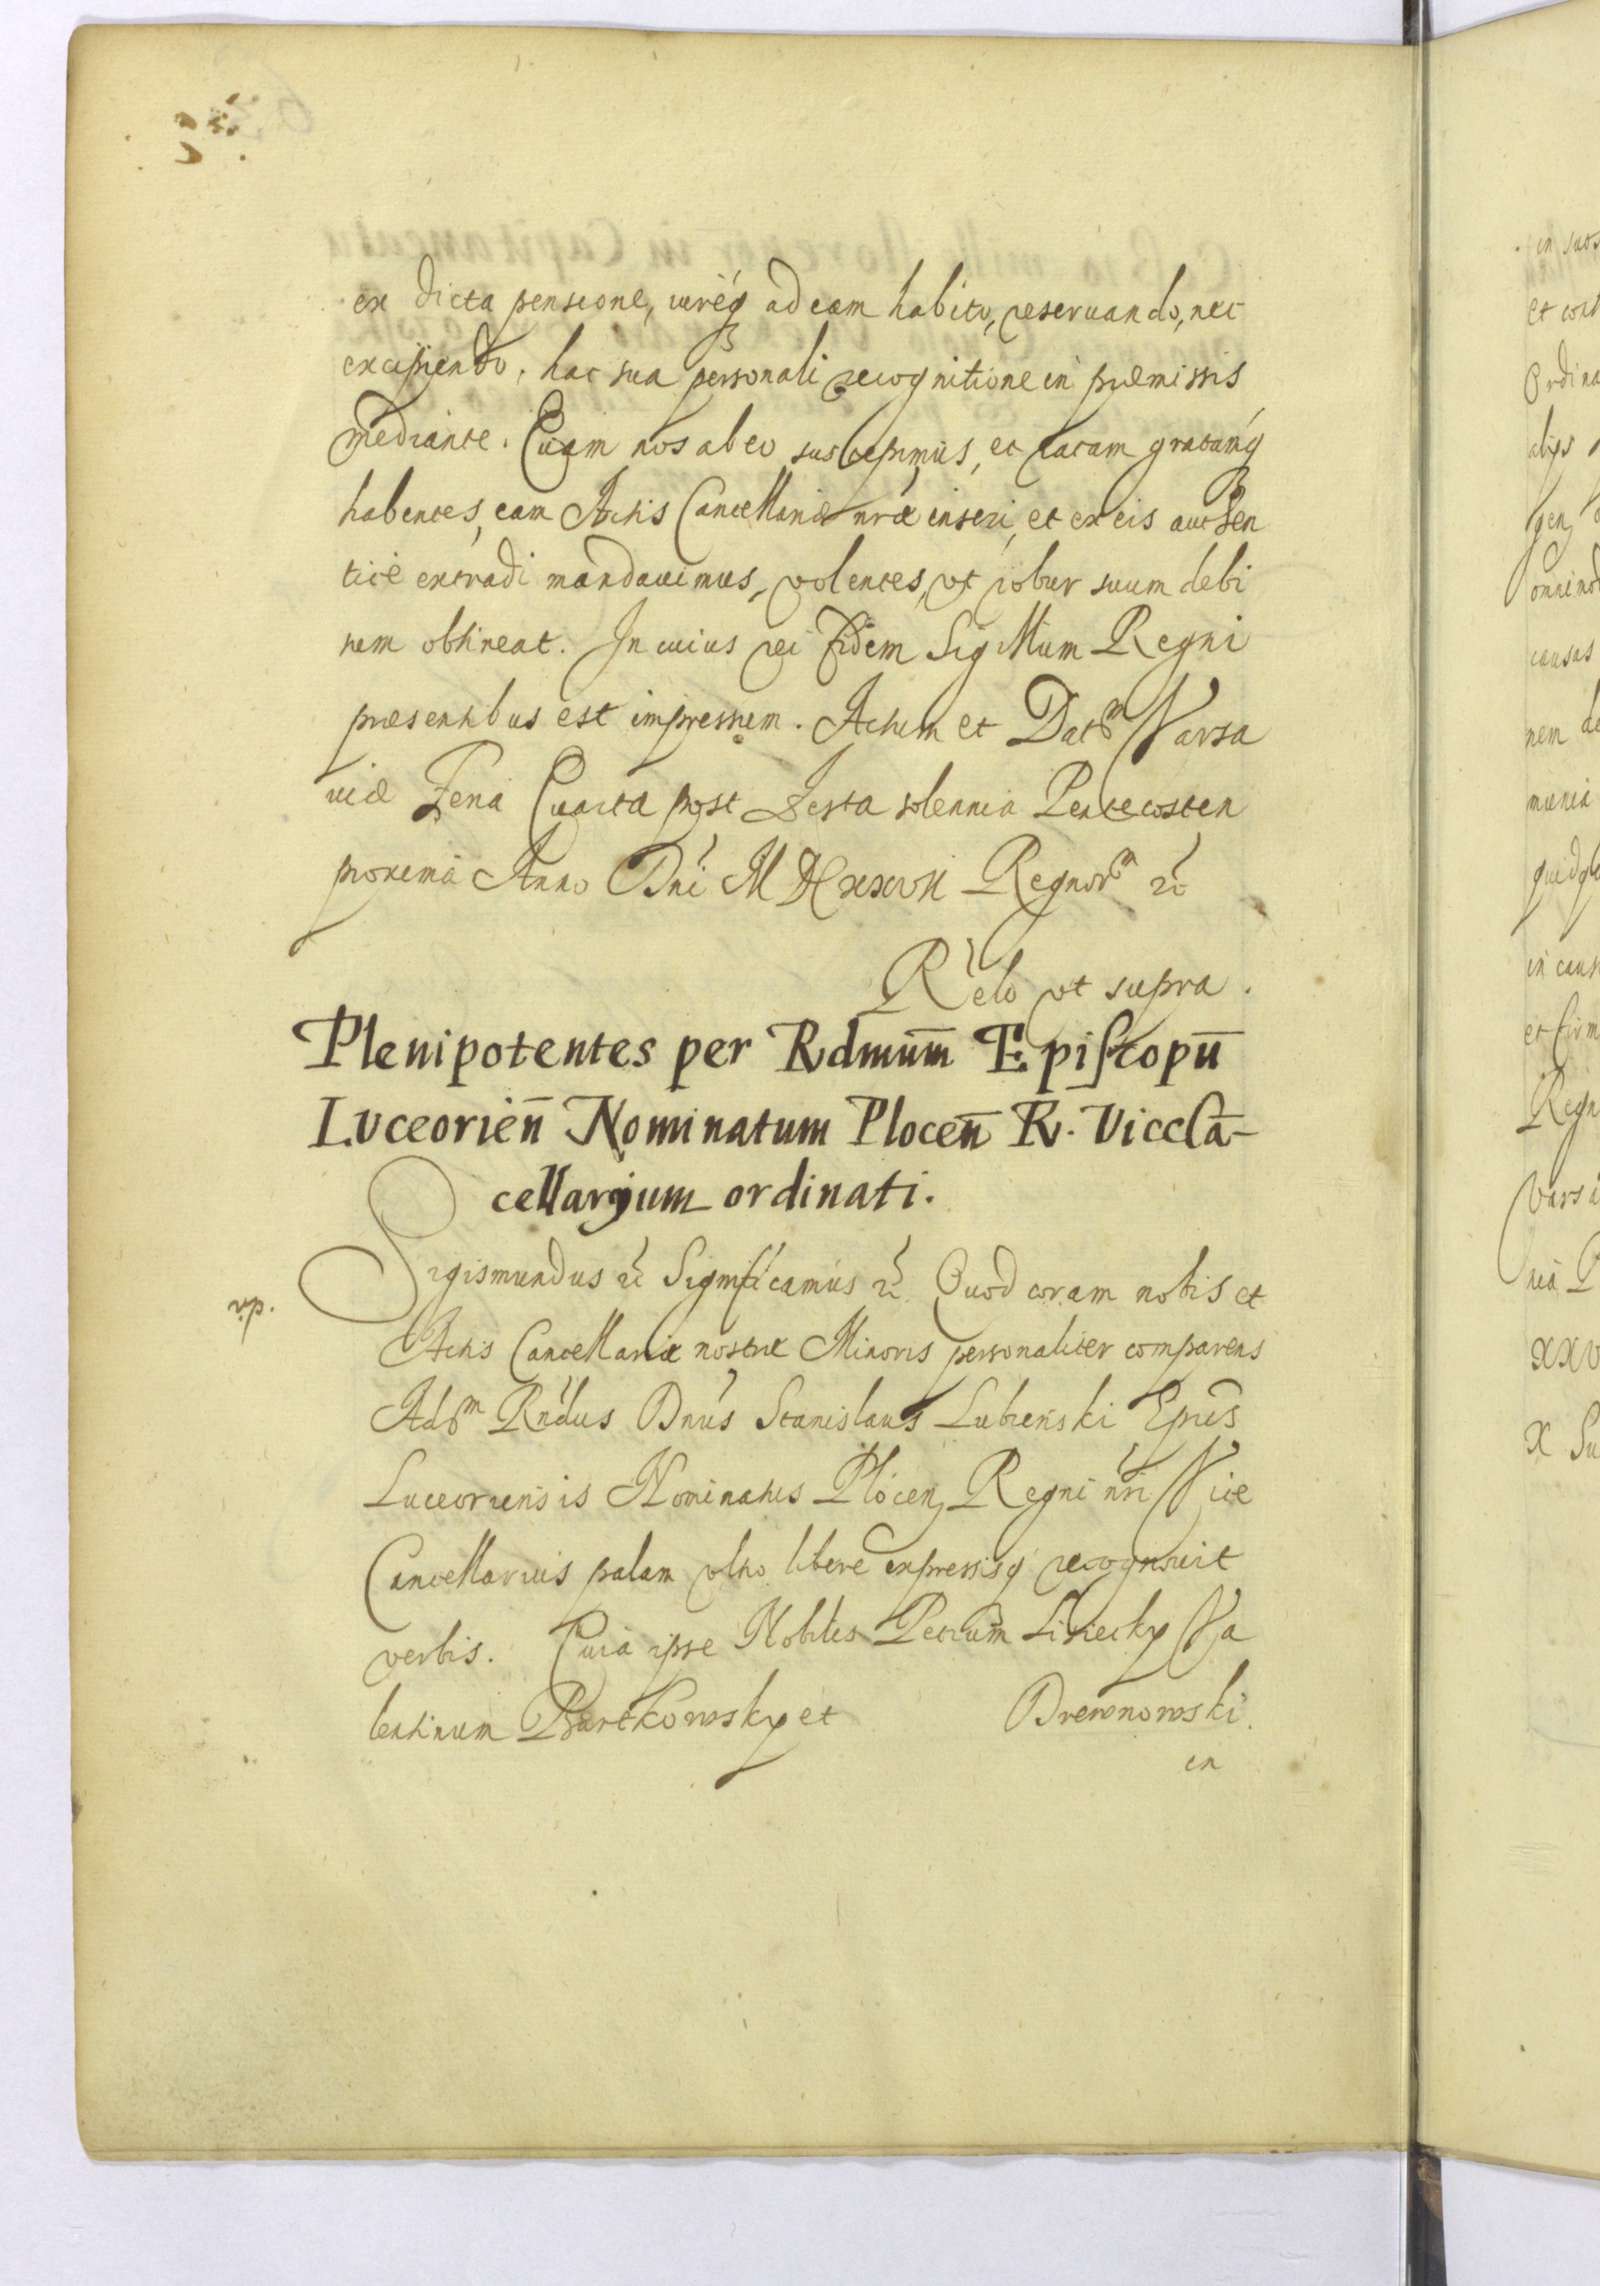 ex dicta pensione, iureq3 ad eam habito, reseruando, nec
excipiendo, hac sua personali recognitione in præmissis
mediante. Quam nos ab eo suscepimus, et ratam gratamq3
habentes, eam Actis Cancellariæ nrae inseri, et ex eis authen
tice extradi mandauimus, volentes, vt robur suum debi
tum obtineat. In cuius rei fidem Sigillum Regni
præsentibus est impressum. Actum et Datm Varsa
uiæ Feria Quarta post Festa solennia Pentecosten
proxima Anno Dni M DCxxvii Regnorm
Relo vt supra.
Plenipotentes per Rdmum̄ Episcopū
Luceorień Nominatum Ploceń R. Vicecā-
cellarium ordinati.
Sigismundus etc Significamus etc. Quod coram nobis et
vp.
Actis Cancellariæ nostræ Minoris personaliter comparens
Adm Rndus Dnus Stanislaus Lubienski Epus
Luceoriensis Nominatus Plocen, Regni nri Vice
Cancellarius palam vltro libere expressisq recognouit
verbis. Quia ipse Nobiles Petrum Va
lentinum Bartkowsky et Drewnowski
in
in
et
Ordina
gen
causas
nem de
munia
quidq
in caus
et firm
Regn
Varsa
XXV
X Su